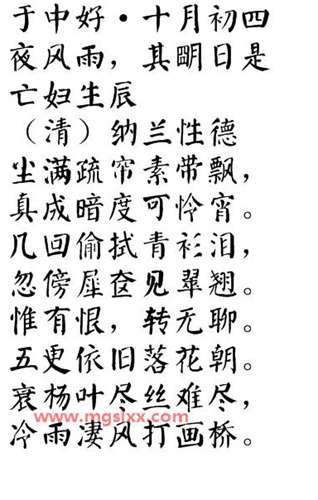 于中好·十月初四
夜风雨，其明日是
亡妇生辰
（清）纳兰性德
尘满疏帘素带飘，
真成暗度可怜宵。
几回偷拭青衫泪，
忽傍犀奁见翠翘。
惟有恨，转无聊。
五更依旧落花朝。
衰杨叶尽丝难尽，
www.mgslxx.com
冷雨凄风打画桥。